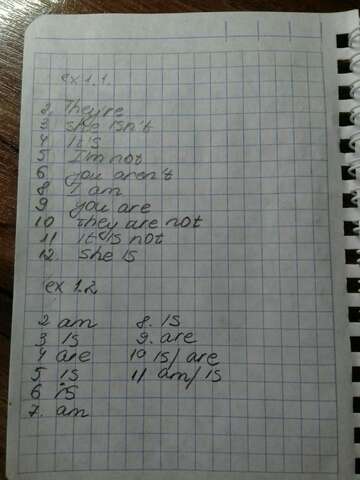 ex 1.1.
2. They're
3 she isn't
4 It's
5 I'm not
6 you aren't
8 I am
9 you are
10 they are not
11 it is not
12. she is
ex 1.2
2 am 8. is
3 is 9. are
4 are 10 is/are
5 is 11 am/is
6 is
7. am